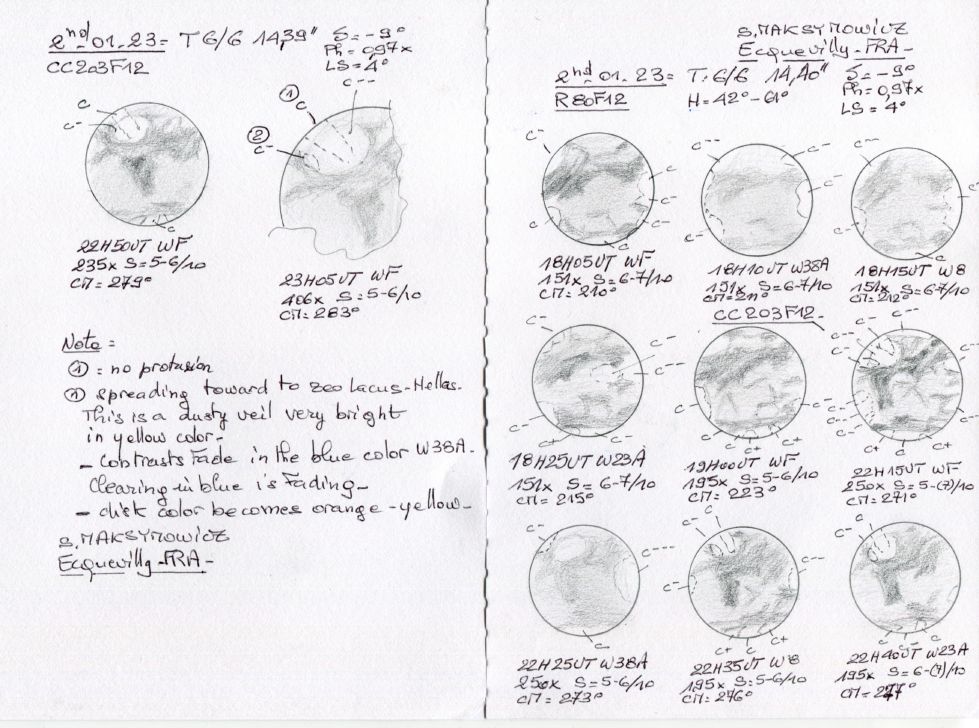 2nd 01.23= T 6/6 14,39"
CC203F12
S = -9°
Ph = 0,97x
LS = 4°
C
C-
C
22H50UT WF
235x S=5-6/10
CM= 279°
① C
C--
② C-
23H05UT WF
406x S=5-6/10
CM= 283°
Note =
① = no protusion
② spreading toward to zeo Lacus-Hellas.
This is a dusty veil very bright
in yellow color-
- contrasts fade in the blue color W38A.
Clearing in blue is fading-
- disk color becomes orange-yellow-
S.MAKSYMOWICZ
Ecquevilly-FRA-
S.MAKSYMOWICZ
Ecquevilly-FRA-
2nd 01.23= T. 6/6 14,40"
R80F12
H=42°-61°
S = -9°
Ph = 0,97x
LS = 4°
C-
C
C
C
C
18H05UT WF
151x S=6-7/10
CM= 210°
C--
C-
C-
C--
C-
18H10UT W38A
151x S=6-7/10
CM= 211°
C--
C-
C-
C-
18H15UT W8
151x S=6-7/10
CM= 212°
CC203F12-
C-
C--
C-
C-
C+
C
18H25UT W23A
151x S=6-7/10
CM= 215°
C-
C
C
C+
C+
19H00UT WF
195x S=5-6/10
CM= 223°
C--
C
C--
C+
C
C+
22H15UT WF
250x S=5-(7)/10
CM= 271°
C-
C
C---
C--
22H25UT W38A
250x S=5-6/10
CM= 273°
C
C-
C---
C+
C
C+
22H35UT W8
195x S=5-6/10
CM= 276°
C-
C
C
C-
C
22H40UT W23A
195x S=6-(7)/10
CM= 277°